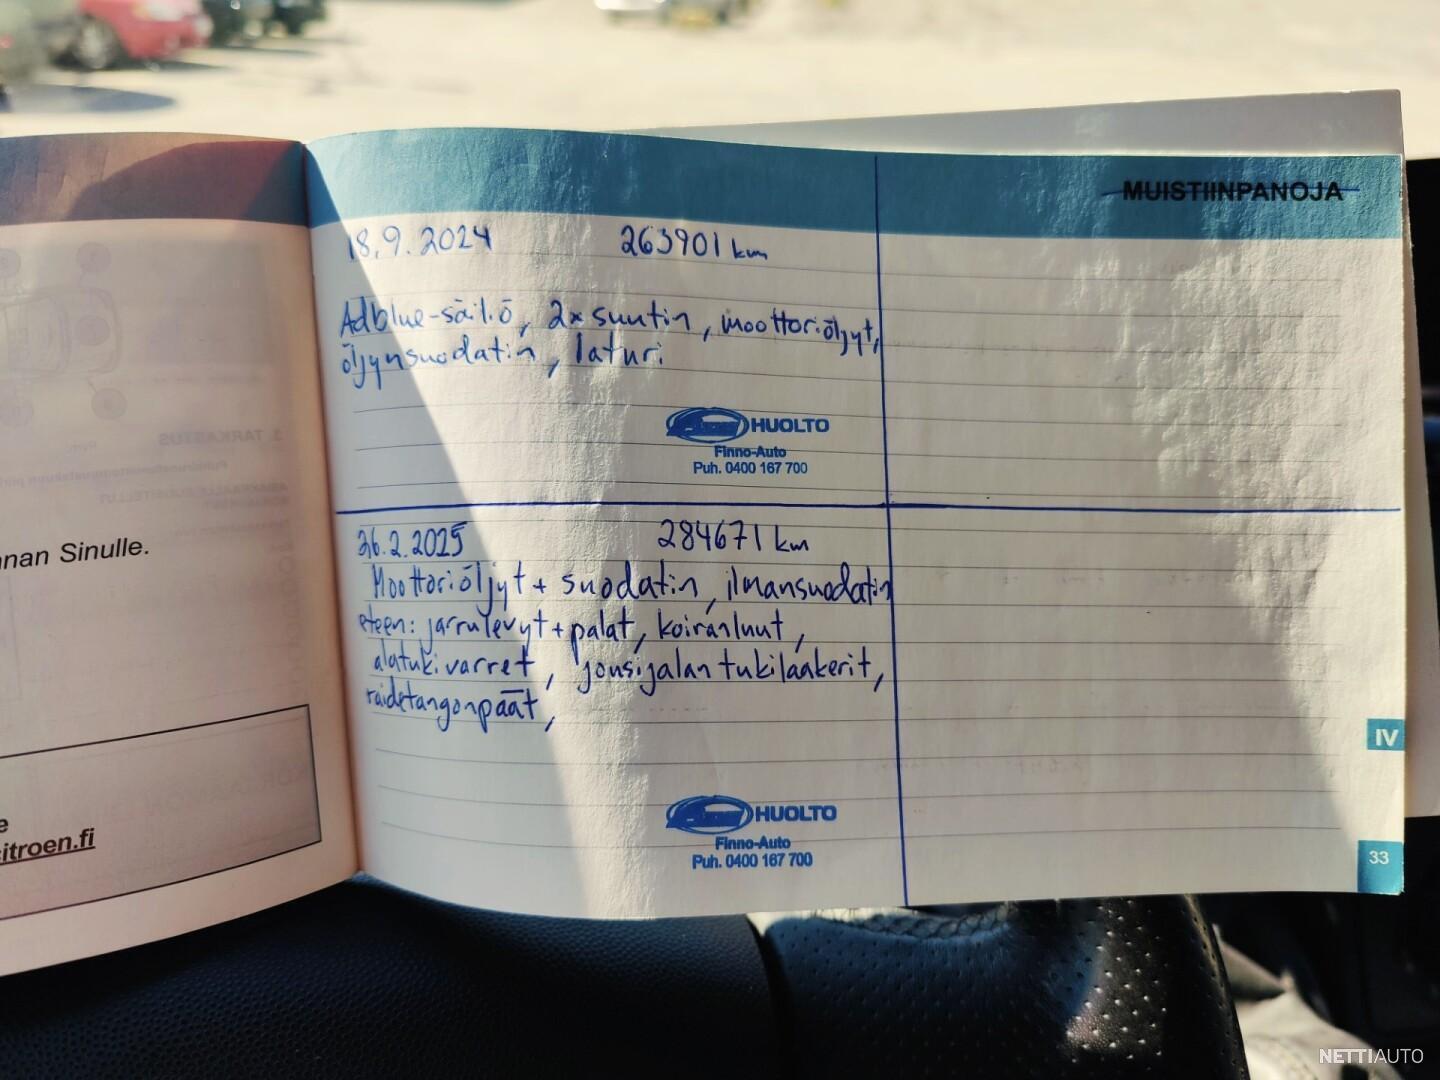 MUISTIINPANOJA
18.9.2024 263901 km
Adblue-säiliö, 2x suutin, moottoriöljyt,
öljynsuodatin, laturi
HUOLTO
Finno-Auto
Puh. 0400 167 700
26.2.2025 284671 km
Moottoriöljyt + suodatin, ilmansuodatin
eteen: jarrulevyt + palat, koiranluut,
alatukivarret, jousijalan tukilaakerit,
raidetangonpäät,
HUOLTO
Finno-Auto
Puh. 0400 167 700
IV
33
nnan Sinulle.
e
itroen.fi
3. TARKASTUS
NETTIAUTO